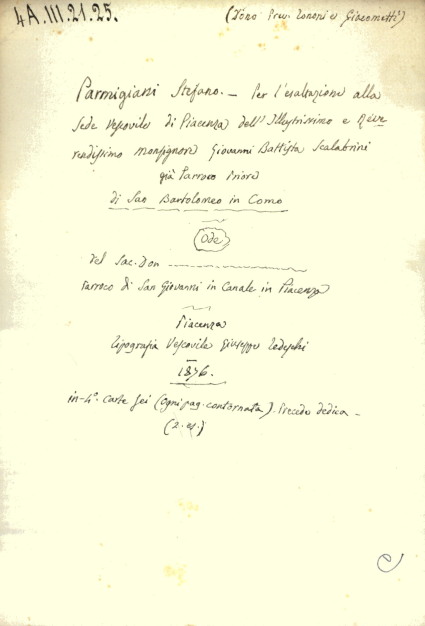 4A.III.21.25. (Dono Prev. Tononi e Giacometti)
Parmigiani Stefano. - Per l'esaltazione alla
Sede Vescovile di Piacenza dell'Illustrissimo e Reve
rendissimo monsignore Giovanni Battista Scalabrini
già Parroco Priore
di San Bartolomeo in Como
Ode
del Sac. Don
Parroco di San Giovanni in Canale in Piacenza
Piacenza
Tipografia Vescovile Giuseppe Tedeschi
1876.
in-4°. Carte sei (ogni pag. contornata). Precede dedica -
(2. es.)